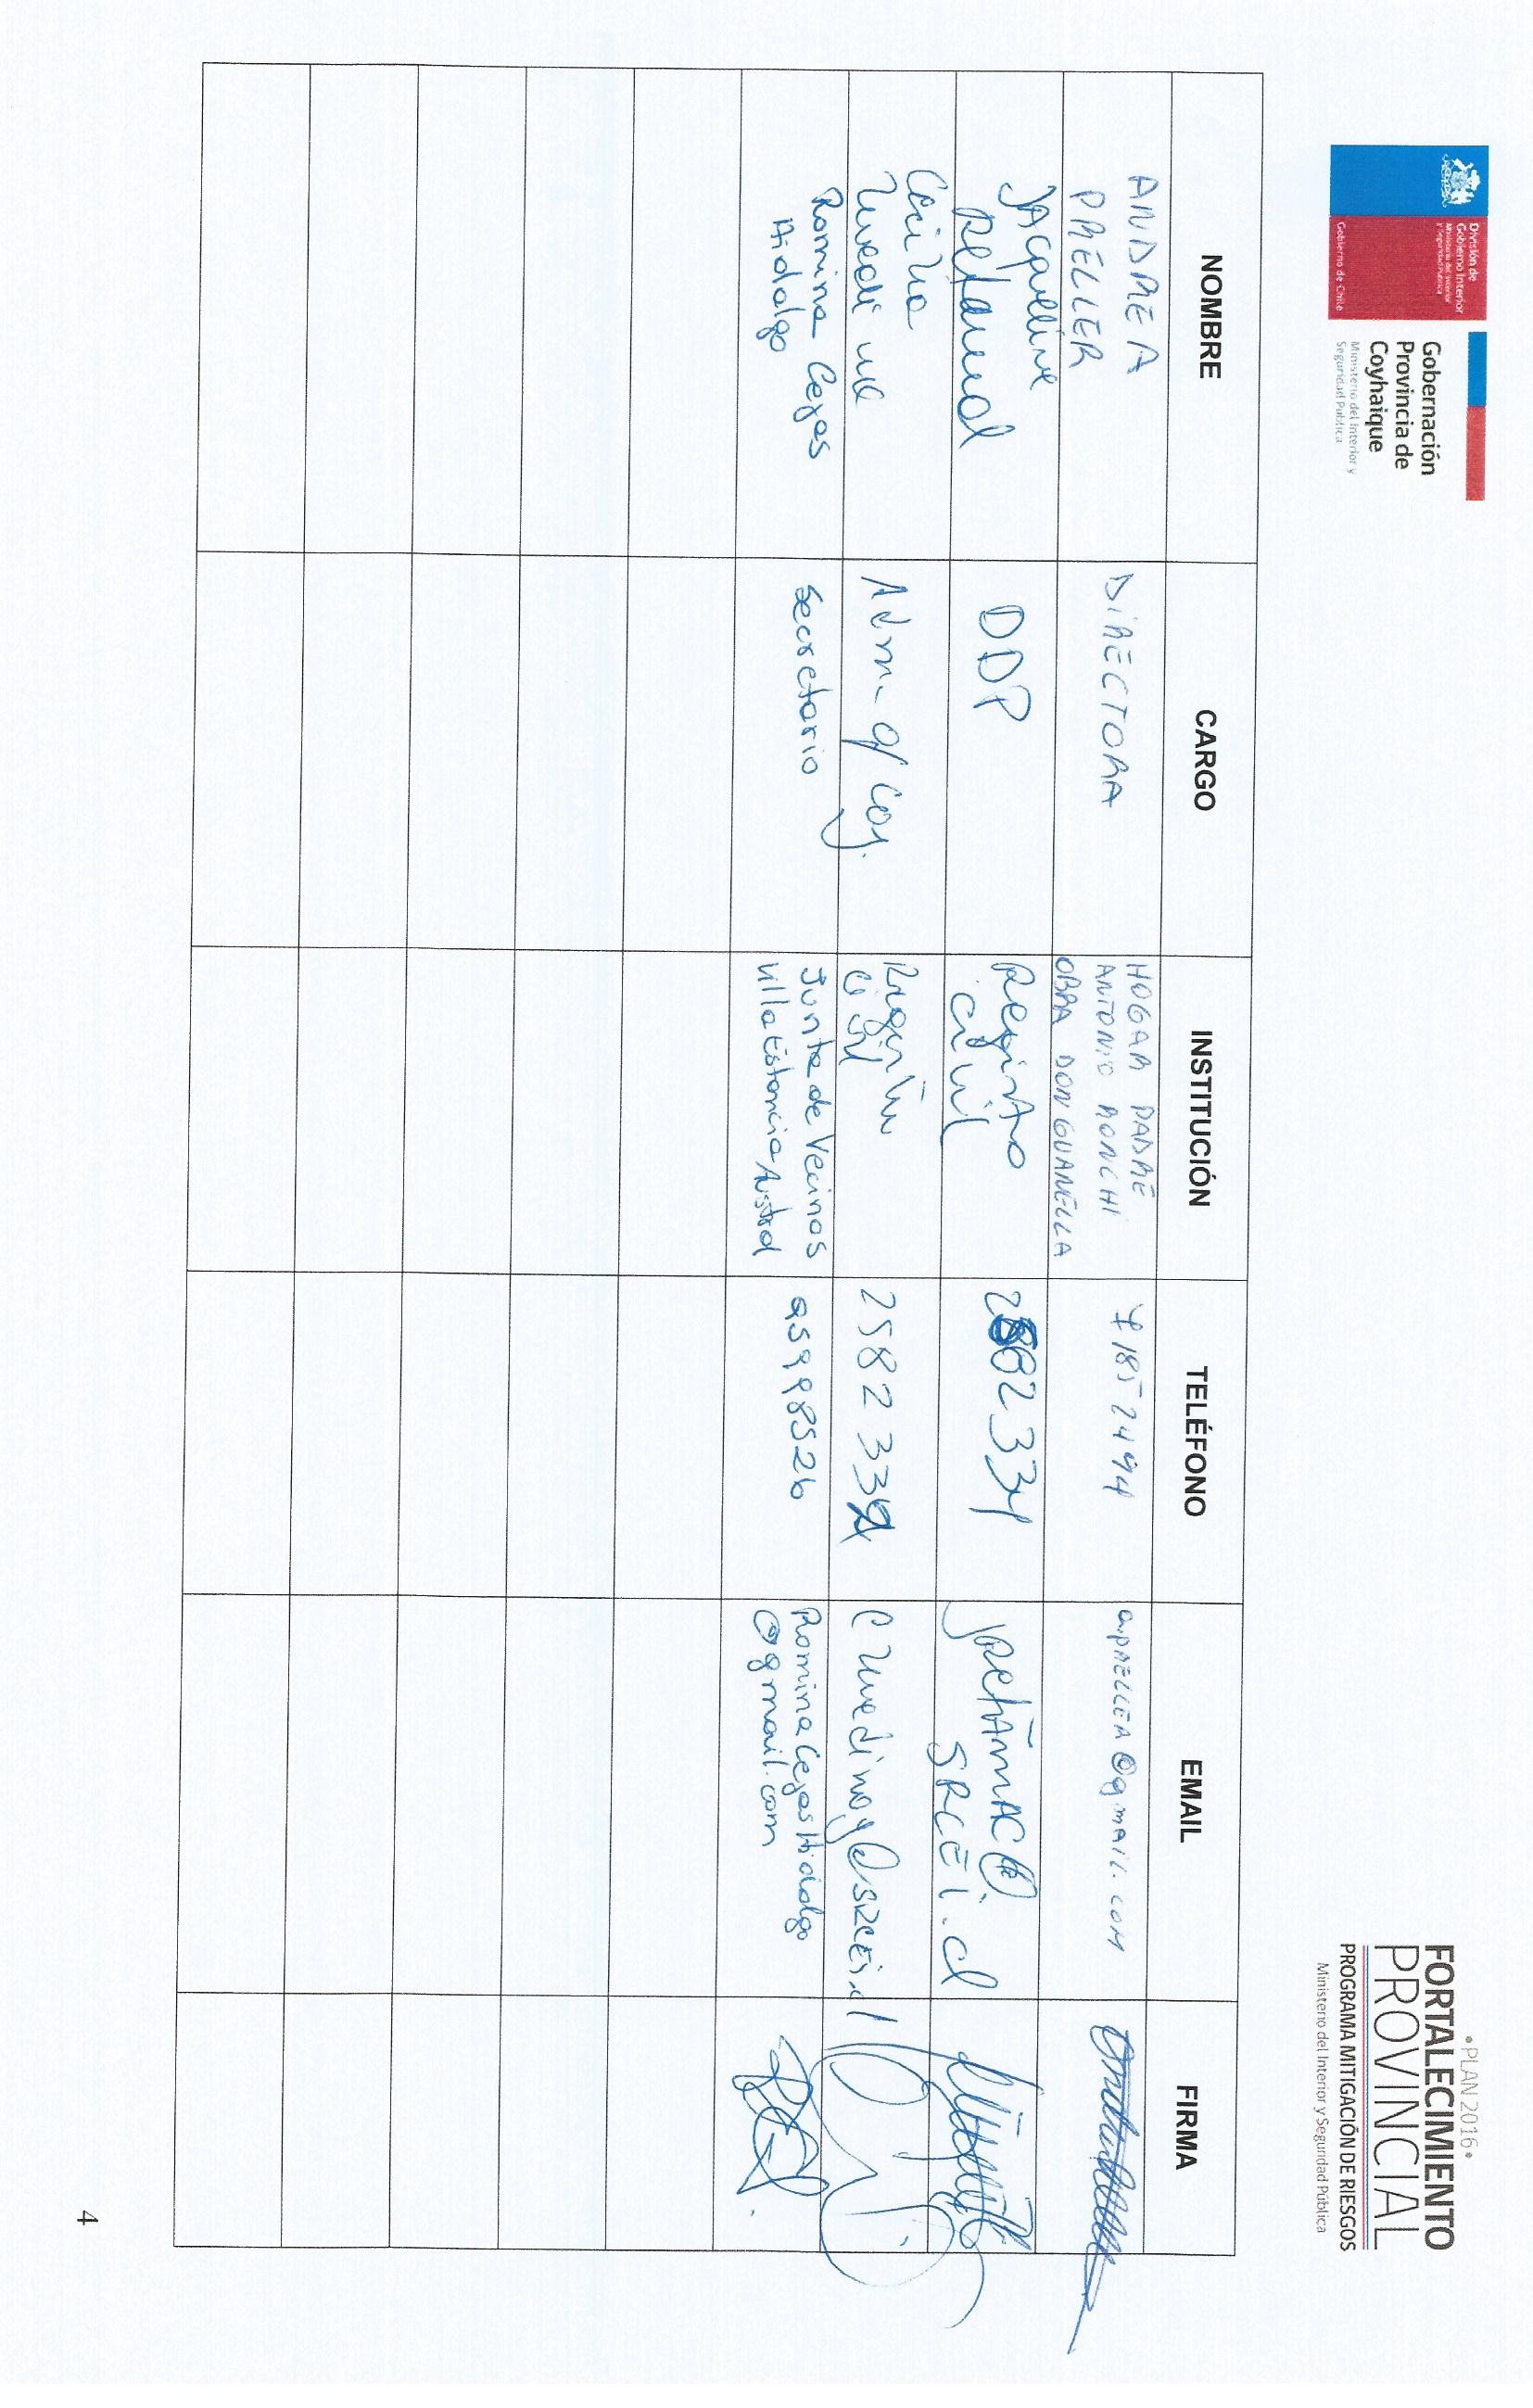 División de
Gobierno Interior
Ministerio del Interior
y Seguridad Pública
Gobierno de Chile
Gobernación
Provincia de
Coyhaique
Ministerio del Interior y
Seguridad Pública
•PLAN 2016•
FORTALECIMIENTO
PROVINCIAL
PROGRAMA MITIGACIÓN DE RIESGOS
Ministerio del Interior y Seguridad Pública
NOMBRE CARGO INSTITUCIÓN TELÉFONO EMAIL FIRMA
ANDREA
PRELLER
DIRECTORA
HOGAR PADRE
ANTONIO RONCHI
OBRA DON GUANELLA
71852494
apRELLER@gmail.com
Jacqueline
Retamal
DDP
Registro
Civil
2582334
jRetamAC@
SRCEI.cl
Cecilia
Adm. of Coy.
Registro
Civil
Romina Cejas
Hidalgo
Secretario
Junta de Vecinos
Villa Estancia Austral
95998526
Romina Cejas Hidalgo
@gmail.com
4